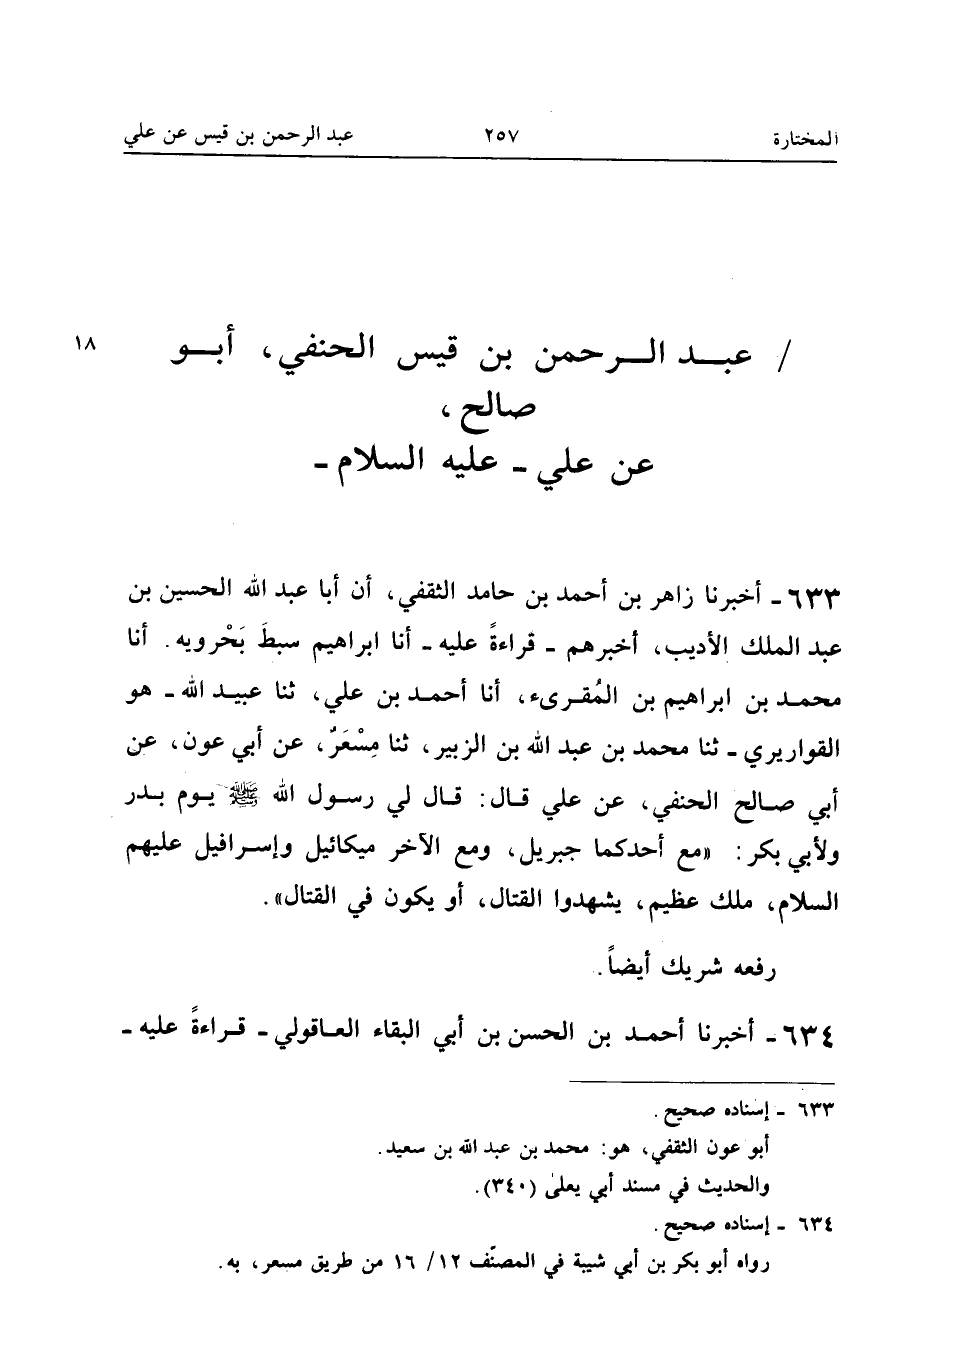 المختارة ٢٥٧ عبد الرحمن بن قيس عن علي
/ عبـد الـرحمن بن قيس الحنفي، أبـو ١٨
صالح،
عن علي ـ عليه السلام ـ
٦٣٣ ـ أخبرنا زاهر بن أحمد بن حامد الثقفي، أن أبا عبد الله الحسين بن
عبد الملك الأديب، أخبرهم ـ قراءةً عليه ـ أنا ابراهيم سبطَ بَحْرويه. أنا
محمـد بن ابراهيم بن المُقـرىء، أنا أحمـد بن علي، ثنا عبيـد الله ـ هو
القواريري ـ ثنا محمد بن عبد الله بن الزبير، ثنا مِسْعَرٌ، عن أبي عون، عن
أبي صـالح الحنفي، عن علي قـال: قـال لي رسـول الله ﷺ يـوم بـدر
ولأبي بكر: «مع أحدكما جبريل، ومع الآخر ميكائيل وإسـرافيل عليهم
السلام، ملك عظيم، يشهدوا القتال، أو يكون في القتال».
رفعه شريك أيضاً.
٦٣٤ ـ أخبرنا أحمـد بن الحسن بن أبي البقاء العـاقولي ـ قـراءةً عليه ـ
٦٣٣ ـ إسناده صحيح.
أبو عون الثقفي، هو: محمد بن عبد الله بن سعيد.
والحديث في مسند أبي يعلى (٣٤٠).
٦٣٤ ـ إسناده صحيح.
رواه أبو بكر بن أبي شيبة في المصنّف ١٢/ ١٦ من طريق مسعر، به.